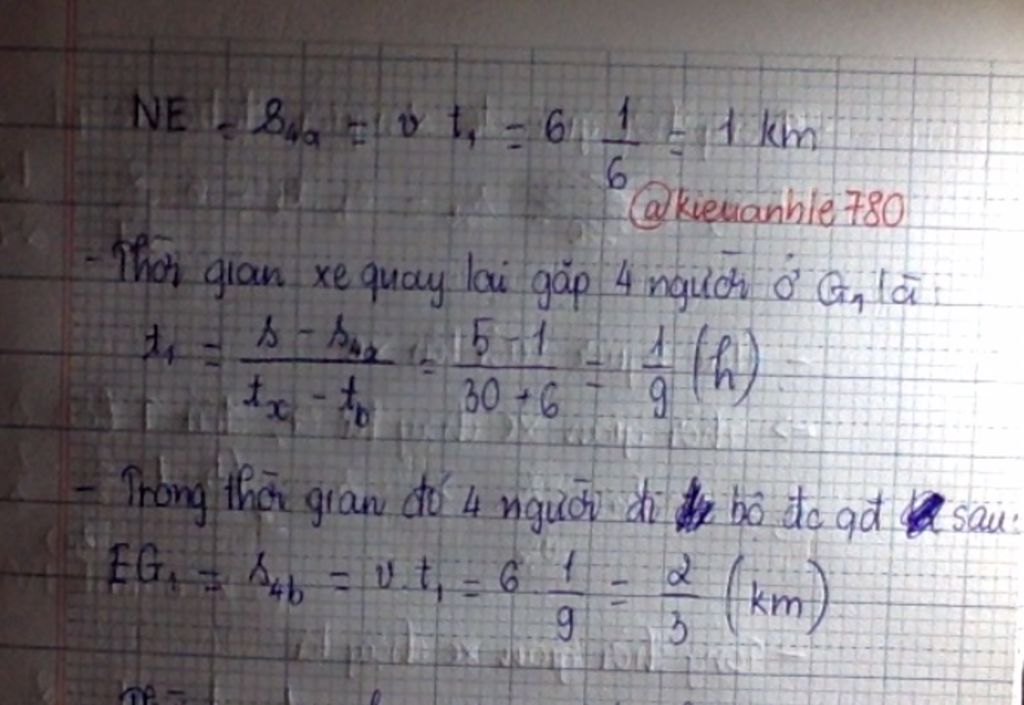 NE = S4a = v t1 = 6 1/6 = 1 km
@kieuanhle780
- Thời gian xe quay lại gặp 4 người ở G1 là:
t1 = (s - s4a)/(tx - tb) = (5 - 1)/(30 + 6) = 1/9 (h)
- Trong thời gian đó 4 người đi bộ đc qđ sau:
EG1 = s4b = v t1 = 6 1/9 = 2/3 (km)